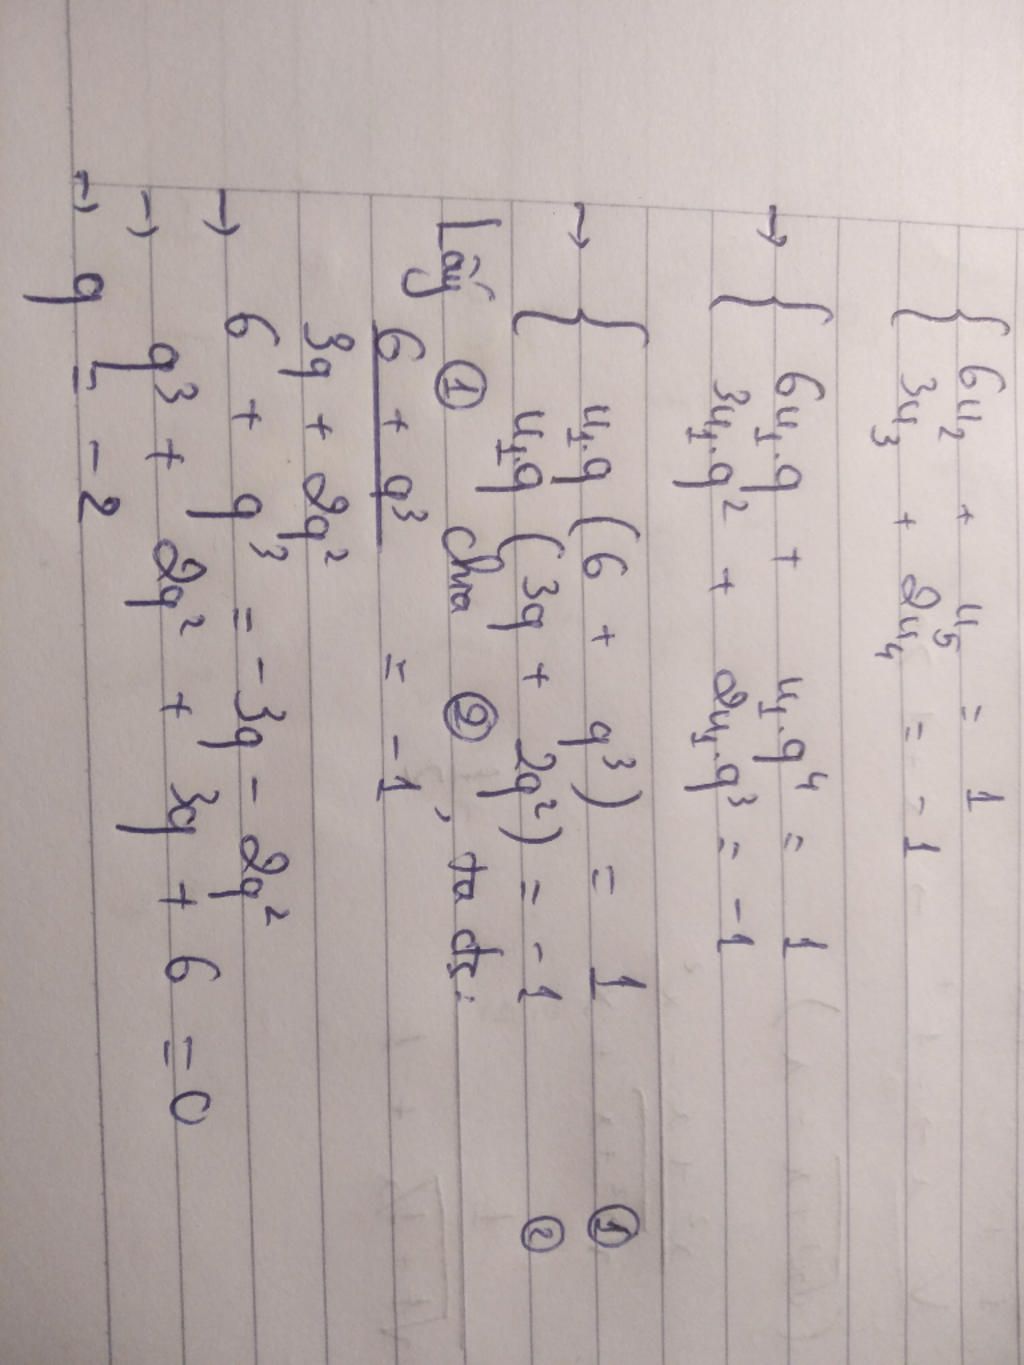 { 6u₂ + u₅ = 1
{ 3u₃ + 2u₄ = -1
→ { 6u₁.q + u₁.q⁴ = 1
{ 3u₁.q² + 2u₁.q³ = -1
→ { u₁.q (6 + q³) = 1 ①
{ u₁.q (3q + 2q²) = -1 ②
Lấy ① chia ②, ta đc:
6 + q³ = -1
3q + 2q²
→ 6 + q³ = -3q - 2q²
→ q³ + 2q² + 3q + 6 = 0
→ q = -2